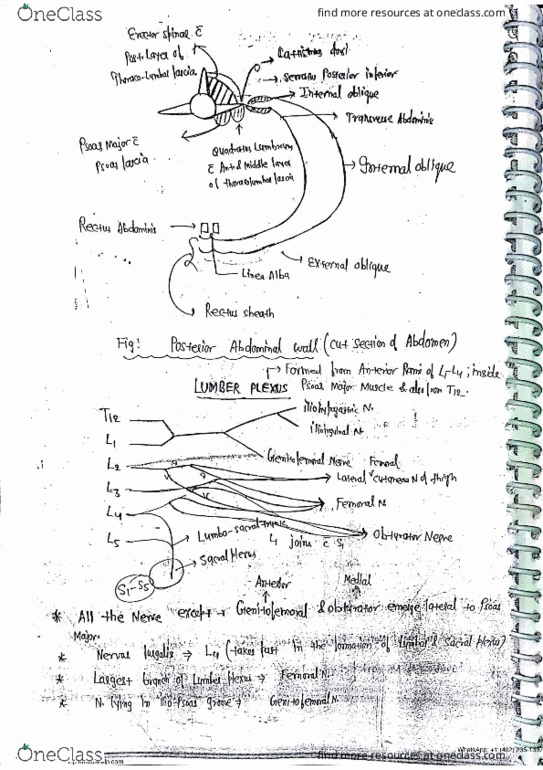 OneClass
find more resources at oneclass.com
Erector spinae c̄
Post Layer of
Thoraco-lumbar fascia
Lattisimus dorsi
Serratus Posterior inferior
Internal oblique
Transverse Abdominis
Psoas Major c̄
Psoas fascia
Quadratus Lumborum
c̄ Ant & Middle layer
of thoracolumbar fascia
External oblique
Rectus Abdominis
External oblique
Linea Alba
Rectus sheath
Fig: Posterior Abdominal wall (cut section of Abdomen)
Formed from Anterior Rami of L1-L4; inside
LUMBER PLEXUS Psoas Major Muscle & also from T12.
T12
L1
L2
L3
L4
L5
S1-S5
iliohypogastric N.
ilioinguinal N.
Genitofemoral Nerve Femoral
Lateral cutaneous N of thigh
Femoral N.
Obturator Nerve
Lumbo-sacral trunk
joins c̄ S1
Sacral Plexus
Anterior Medial
* All the Nerve except → Genitofemoral & obturator emerge lateral to Psoas
Major.
* Nervus furgalis → L4 (takes part in the formation of lumbar & sacral plexus)
* Largest branch of Lumber Plexus → Femoral N.
* N. lying in ilio-Psoas groove → Genitofemoral N.
OneClass
find more resources at oneclass.com